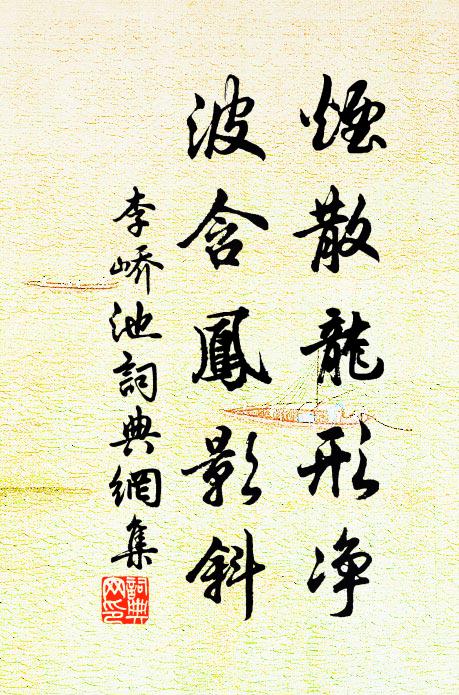 煙散龍形净
波含鳳影斜
李嶠池詞典網集
詞典
网印